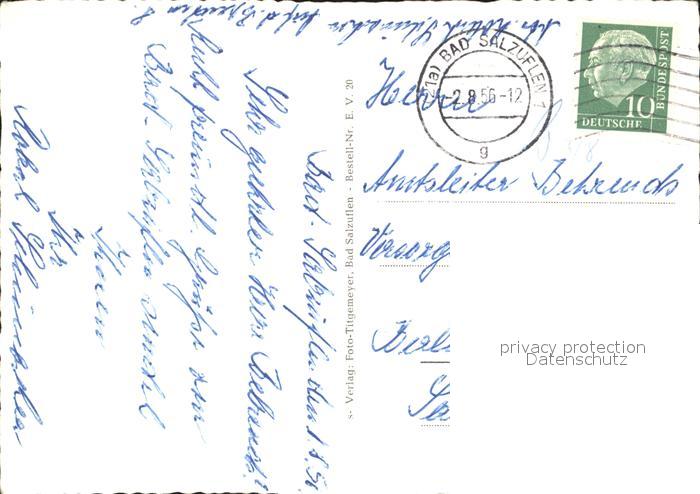 Bad-Salzuflen den 1.8.56
Sehr geehrter Herr Behrends!
Recht freundl. Grüße aus
Bad-Salzuflen sendet
Ihnen
Ihr
s- Verlag: Foto-Titgemeyer, Bad Salzuflen - Bestell-Nr. E. V. 20
(21a) BAD SALZUFLEN 1
-2.8.56-12
g
10
DEUTSCHE
BUNDESPOST
Herrn
Amtsleiter Behrends
Versorg
Berl
privacy protection
Datenschutz